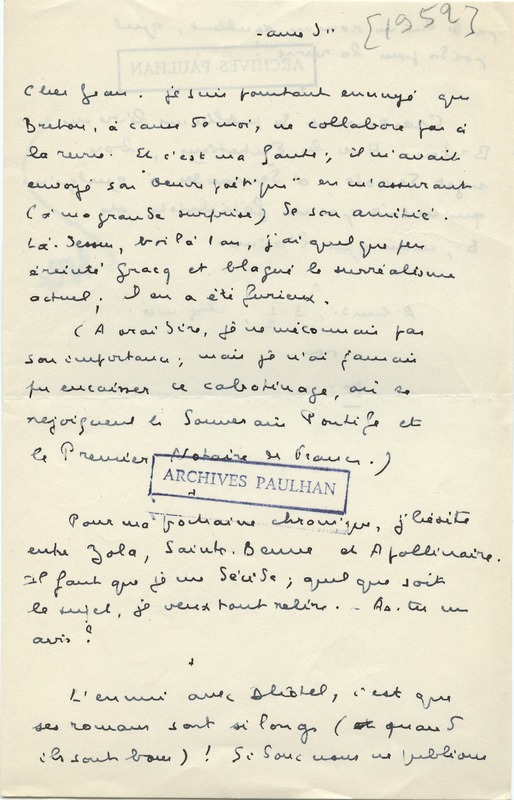 - samedi
[1952]
ARCHIVES PAULHAN
Cher Jean. je suis pourtant ennuyé que
Breton, à cause de moi, ne collabore pas à
la revue. Et, c'est ma faute; il m'avait
envoyé son "oeuvre poétique" en m'assurant
(à ma grande surprise) de son amitié.
Là-dessus, voilà 1 an, j'ai quelque peu
éreinté Gracq et blagué le surréalisme
actuel. Il en a été furieux.
(A vrai dire, je ne méconnais pas
son importance; mais je n'ai jamais
pu encaisser ce cabotinage, où se
rejoignent le Souverain Pontife et
le Premier Notaire de France.)
ARCHIVES PAULHAN
Pour ma prochaine chronique, j'hésite
entre Zola, Sainte-Beuve et Apollinaire.
Il faut que je me décide; quel que soit
le sujet, je veux tout relire. - As-tu un
avis?
L'ennui avec Dhôtel, c'est que
ses romans sont si longs (quand
ils sont bons)! Si donc nous ne publions